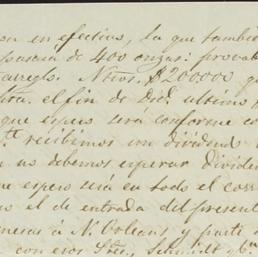 en efectivo, la que tambien
pasará de 400 onzas: provab
arreglo. Ntros. $200000 qu
el fin de Dic. ultimo
que espero será conforme co
recibimos un dividend
no debemos esperar divide
e espero será en todo el corr
el de entrada del present
á N. Orleans y parte
con esos Sres. Schmidt y